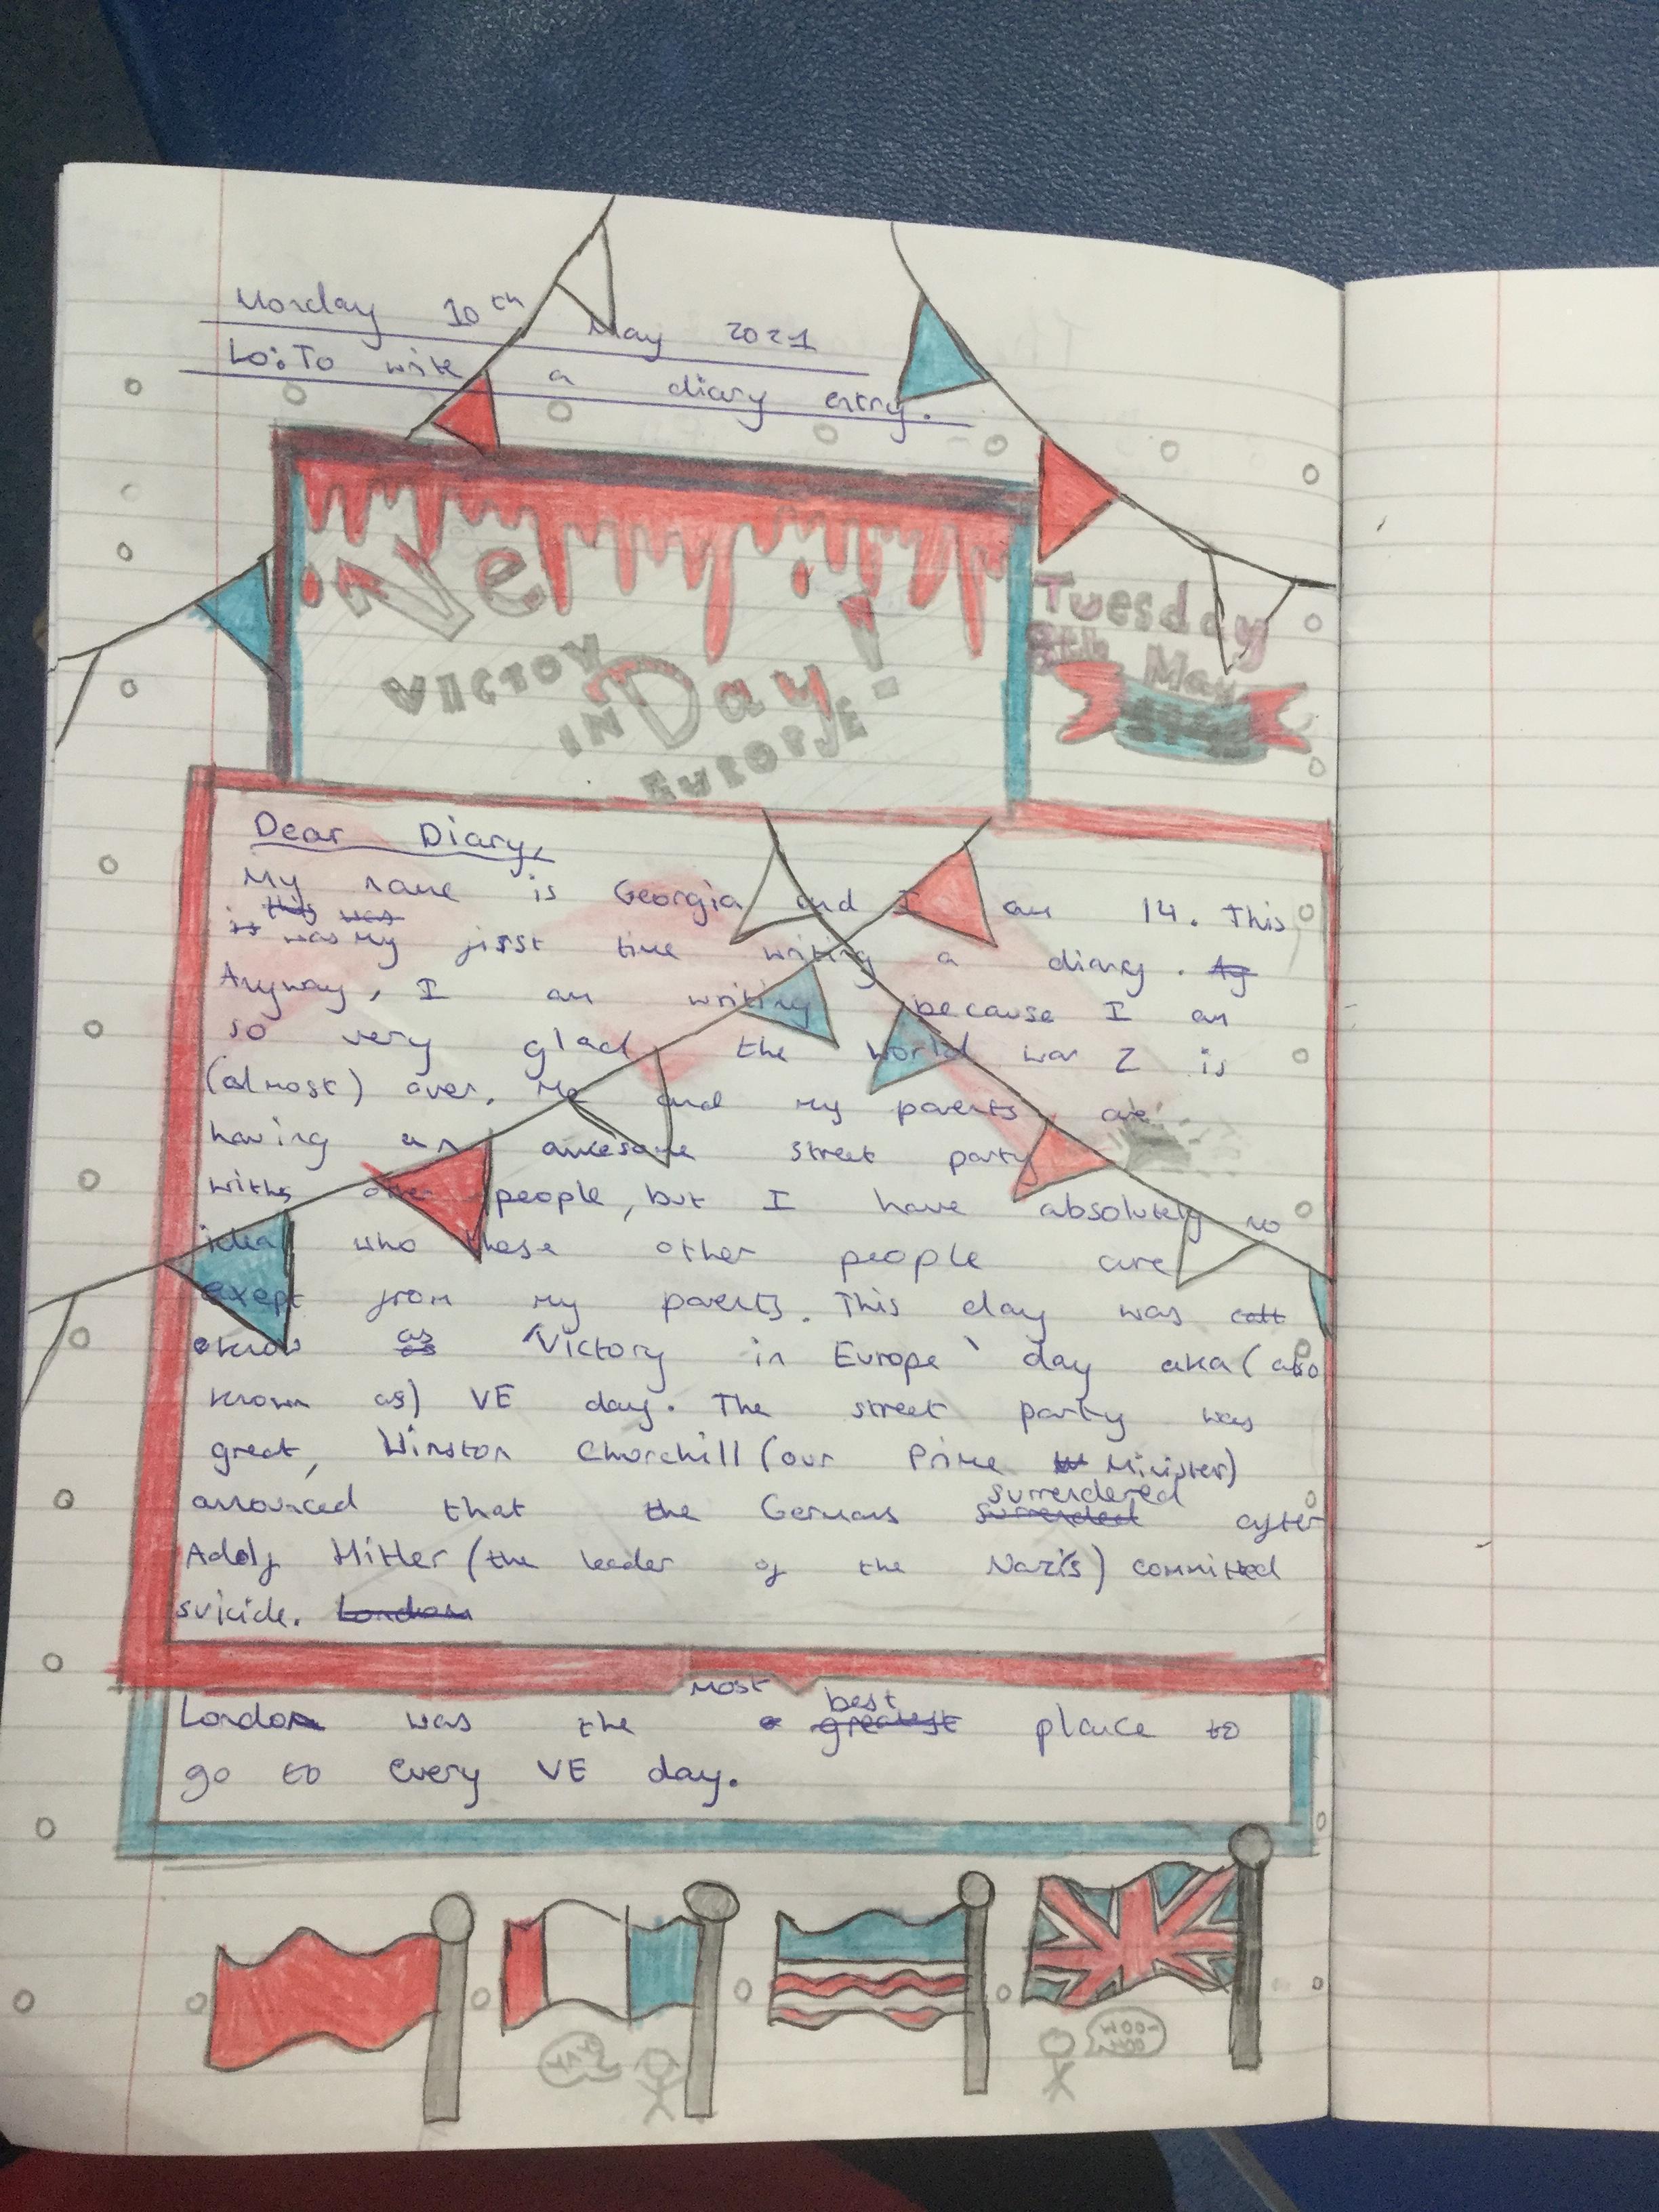 Monday 10th May 2021
LO: To write a diary entry.
Ve
Day!
VICTOY
IN
EUROPE
Tuesday
8th May
1945
Dear Diary,
My name is Georgia and I am 14. This
is this was was my first time writing a diary. Ay
Anyway, I am writing because I am
so very glad the world war 2 is
(almost) over. Me and my parents are
having an awesome street party
with other people, but I have absolutely no
idea who these other people are
exept from my parents. This day was call
know as as 'Victory in Europe' day aka (also
known as) VE day. The street party was
great, Winston Chorchill (our Prime Minister)
annouced that the Germans surrended surrendered after
Adolf Hitler (the leader of the Nazi's) committed
suicide. London
London was the most greatest best plaice to
go to every VE day.
YAY
WOO-
HOO